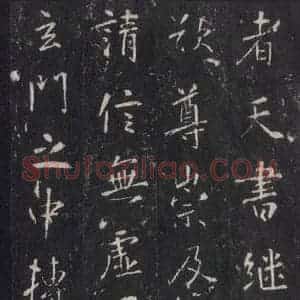 者天書継
尊崇及
請信無虛
玄門之中
Shufazidian.com